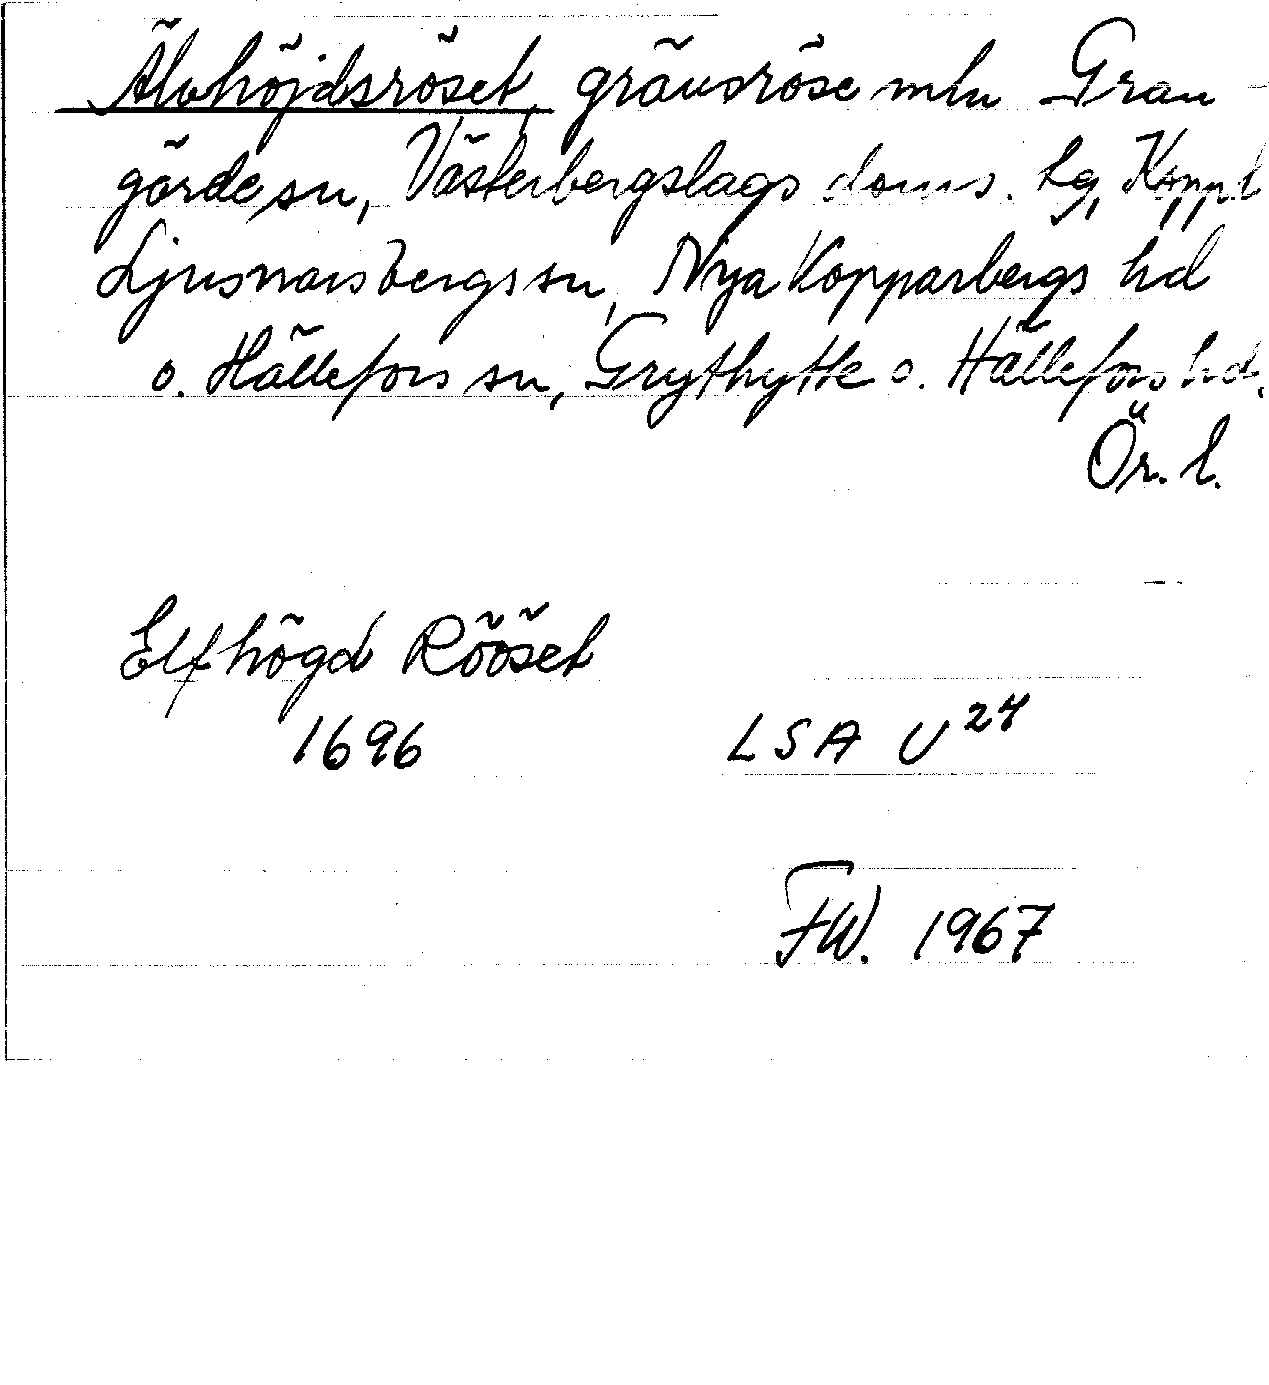 Älvhöjdsröset, gränsröse mln Gran-
gärde sn, Västerbergslags doms. tg, Kopp. l
Ljusnarsbergs sn, Nya Kopparbergs hd
o. Hällefors sn, Grythytte o. Hällefors hd.
Ör. l.
Elfhögd Rööset
1696 LSA U24
FW. 1967